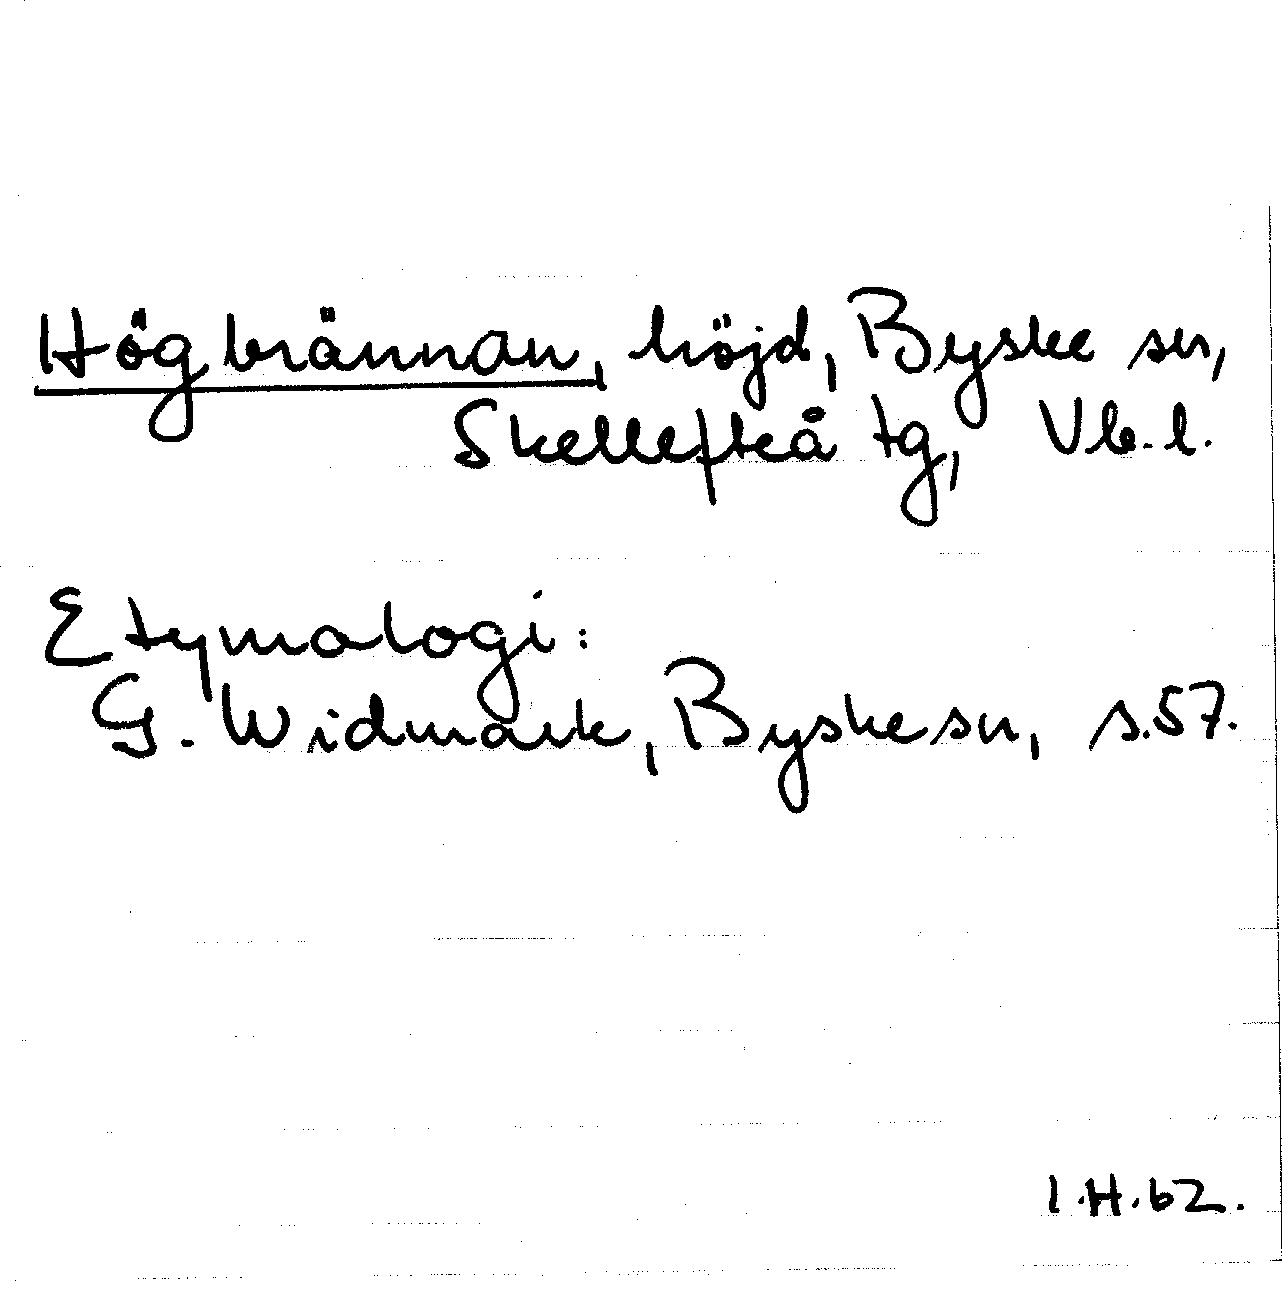 Högbrännan, höjd, Byske sn,
Skellefteå tg, Vb.l.
Etymologi:
G. Widmark, Byskesn, s.57.
I.H.62.